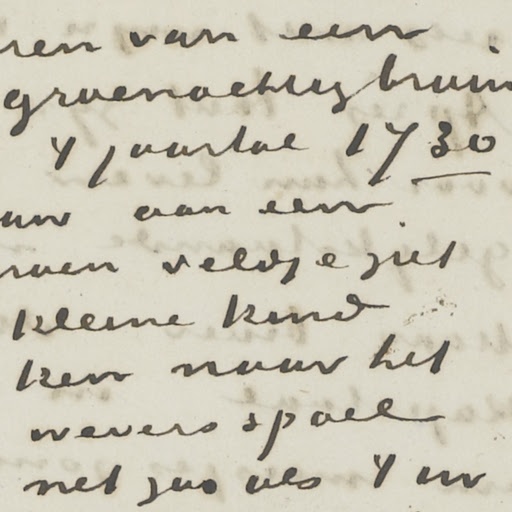 ren van een
groenachtig bruin
't jaartal 1730
uw aan een
roen veldje ziet
kleine kind
ken naar het
wevers spoel
net zoo als 't in